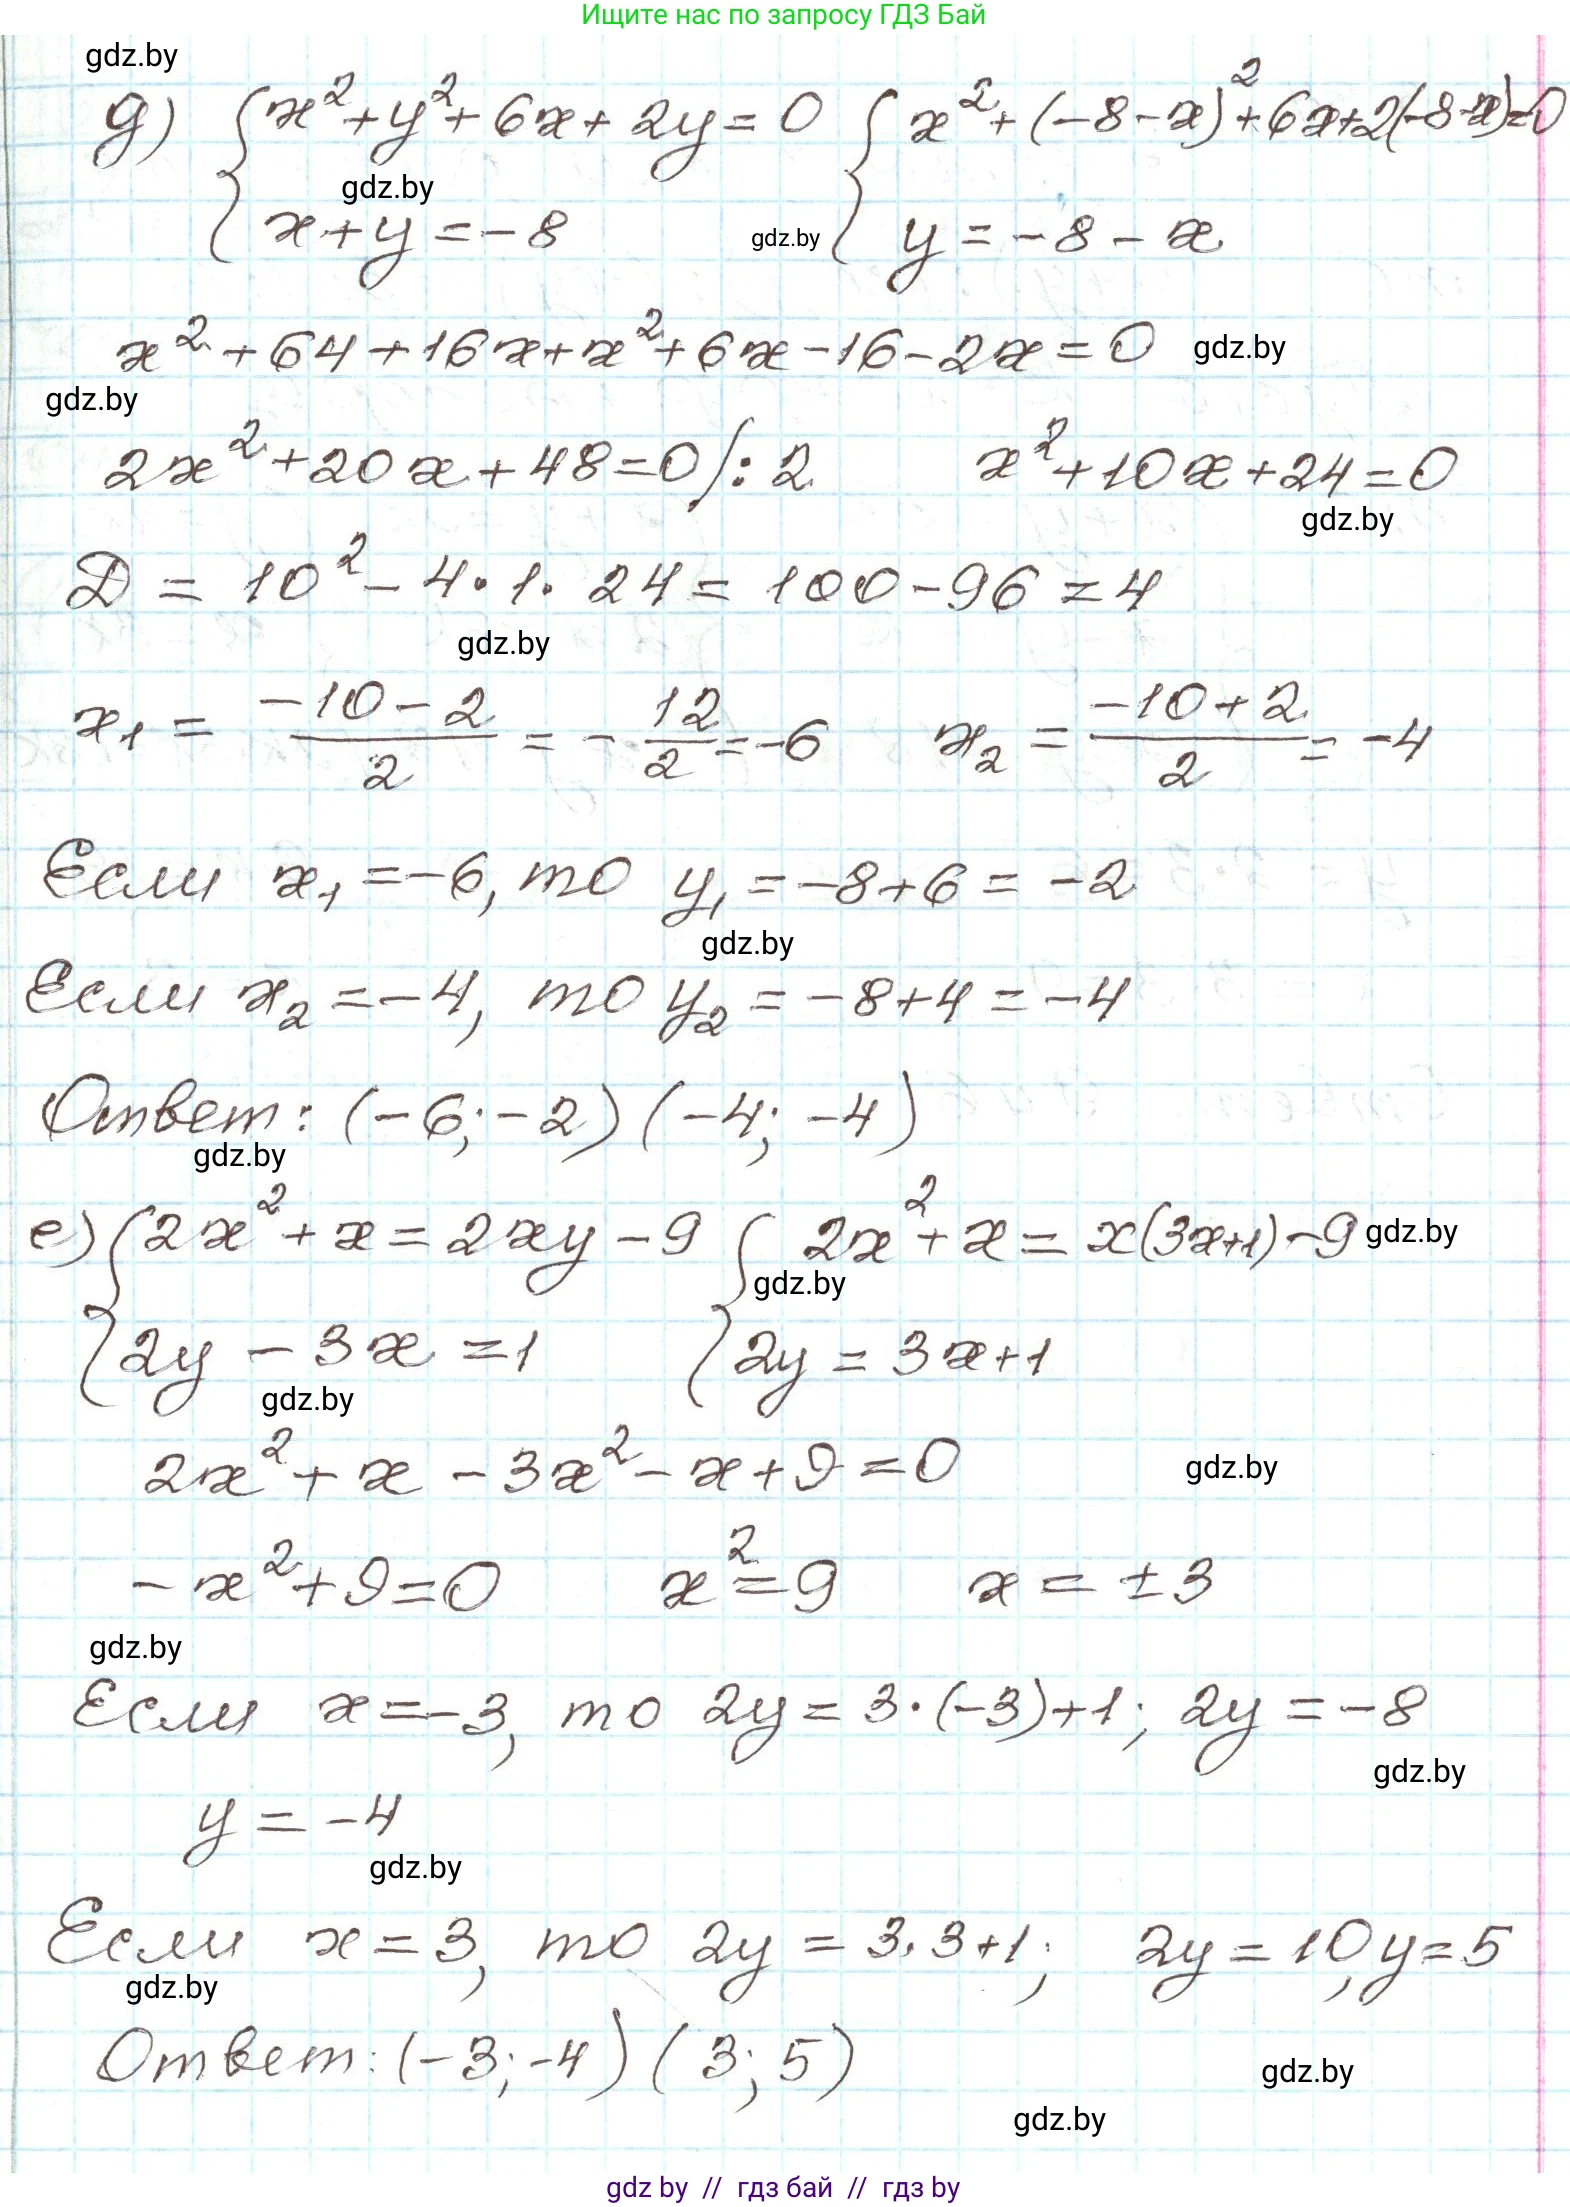 Ищите нас по запросу ГДЗ Бай
gdz.by
д) { x² + y² + 6x + 2y = 0 { x² + (-8-x)² + 6x + 2(-8-x) = 0
gdz.by
x + y = -8 gdz.by y = -8 - x
x² + 64 + 16x + x² + 6x - 16 - 2x = 0 gdz.by
gdz.by
2x² + 20x + 48 = 0 /: 2 x² + 10x + 24 = 0
gdz.by
D = 10² - 4 · 1 · 24 = 100 - 96 = 4
gdz.by
x₁ = (-10 - 2)/2 = - 12/2 = -6 x₂ = (-10 + 2)/2 = -4
Если x₁ = -6, то y₁ = -8 + 6 = -2
gdz.by
Если x₂ = -4, то y₂ = -8 + 4 = -4
Ответ: (-6; -2) (-4; -4)
gdz.by
е) { 2x² + x = 2xy - 9 { 2x² + x = x(3x+1) - 9 gdz.by
gdz.by
2y - 3x = 1 2y = 3x + 1
gdz.by
2x² + x - 3x² - x + 9 = 0 gdz.by
-x² + 9 = 0 x² = 9 x = ± 3
gdz.by
Если x = -3, то 2y = 3 · (-3) + 1; 2y = -8
gdz.by
y = -4
gdz.by
Если x = 3, то 2y = 3 · 3 + 1; 2y = 10, y = 5
gdz.by
Ответ: (-3; -4) (3; 5)
gdz.by
gdz.by
gdz by // гдз бай // гдз by